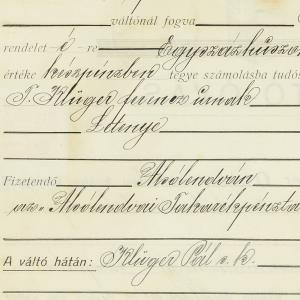 váltónál fogva
rendelet é re Egyszázhúszon
értéke készpénzben tegye számolásba tudós
T. Klüger Ferencz úrnak
Letenye
Fizetendő Alsólendván
az Alsólendvai Takarékpénzta
A váltó hátán: Klüger Pál s. k.